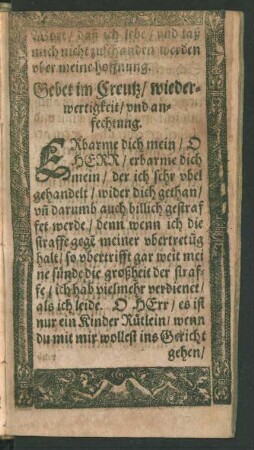 wort / daß ich lebe / und laß
mich nicht zuschanden werden
vber meine hoffnung.
Gebet im Creutz / wieder-
wertigkeit / vnd an-
fechtung.
ERbarme dich mein / O
HERR / erbarme dich
mein / der ich sehr vbel
gehandelt / wider dich gethan /
vñ darumb auch billich gestraf
fet werde / denn wenn ich die
straffe gegẽ meiner vbertretũg
halt / so vbertrifft gar weit mei
ne sünde die großheit der straf-
fe / ich hab vielmehr verdienet /
als ich leide. O HErr / es ist
nur ein Kinder Rütlein / wenn
du mit mir wollest ins Gericht
gehen /